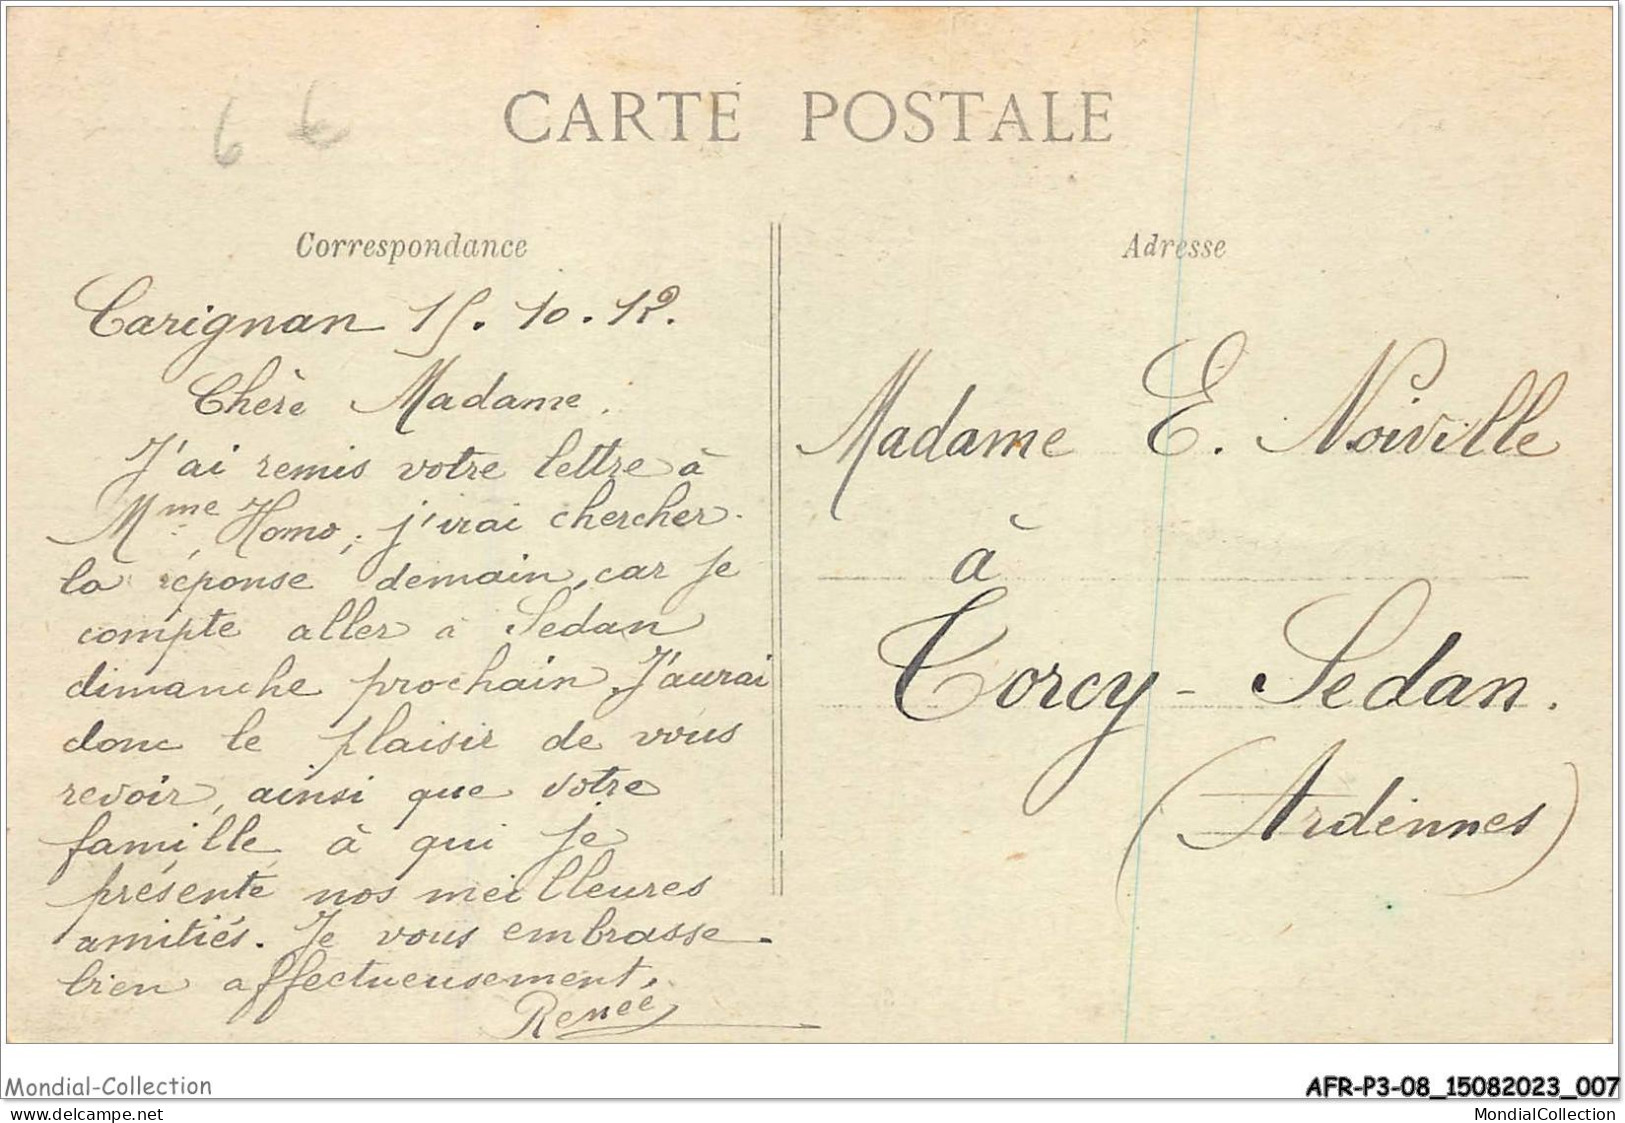 CARTE POSTALE
6 €
Correspondance
Carignan 15.10.12.
Chère Madame.
J'ai remis votre lettre à
Mme Homo, j'irai chercher
la réponse demain, car je
compte aller à Sedan
dimanche prochain, J'aurai
donc le plaisir de vous
revoir, ainsi que votre
famille à qui je
présente nos meilleures
amitiés. Je vous embrasse
bien affectueusement.
Renée
Adresse
Madame E. Noiville
à
Torcy-Sedan.
(Ardennes)
Mondial-Collection
AFR-P3-08_15082023_007
delcampe.net
MondialCollection